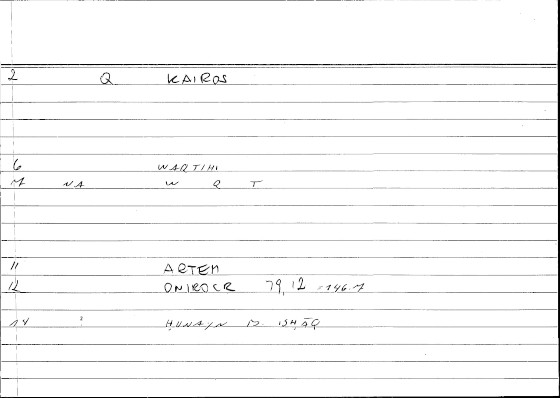 2 Q KAIROS
6 WAQTIHI
7 NA W Q T
11 ARTEM
12 ONIROCR 79,12 = 146.7
14 : ḤUNAJN B. ISḤĀQ